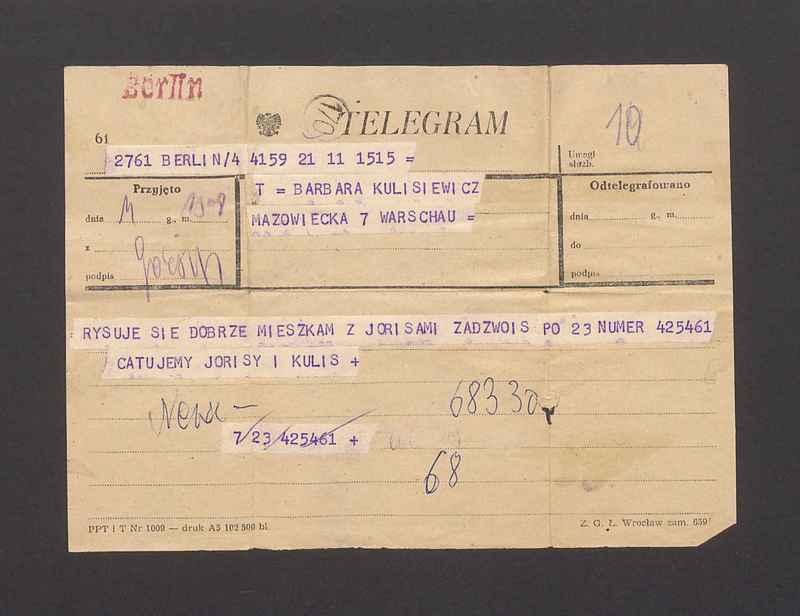 Berlin
TELEGRAM
10
61
2761 BERLIN/4 4159 21 11 1515 =
Uwagi
służb.
Przyjęto
T = BARBARA KULISIEWICZ
Odtelegrafowano
dnia 11 g., m.
MAZOWIECKA 7 WARSCHAU =
dnia g., m.
z
do
podpis
podpis
RYSUJE SIE DOBRZE MIESZKAM Z JORISAMI ZADZWOIS PO 23 NUMER 425461
CATUJEMY JORISY I KULIS +
68330
7/23 425461 +
68
PPT i T Nr 1009 — druk A5 102 500 bl.
Z. G. Ł. Wrocław zam. 659